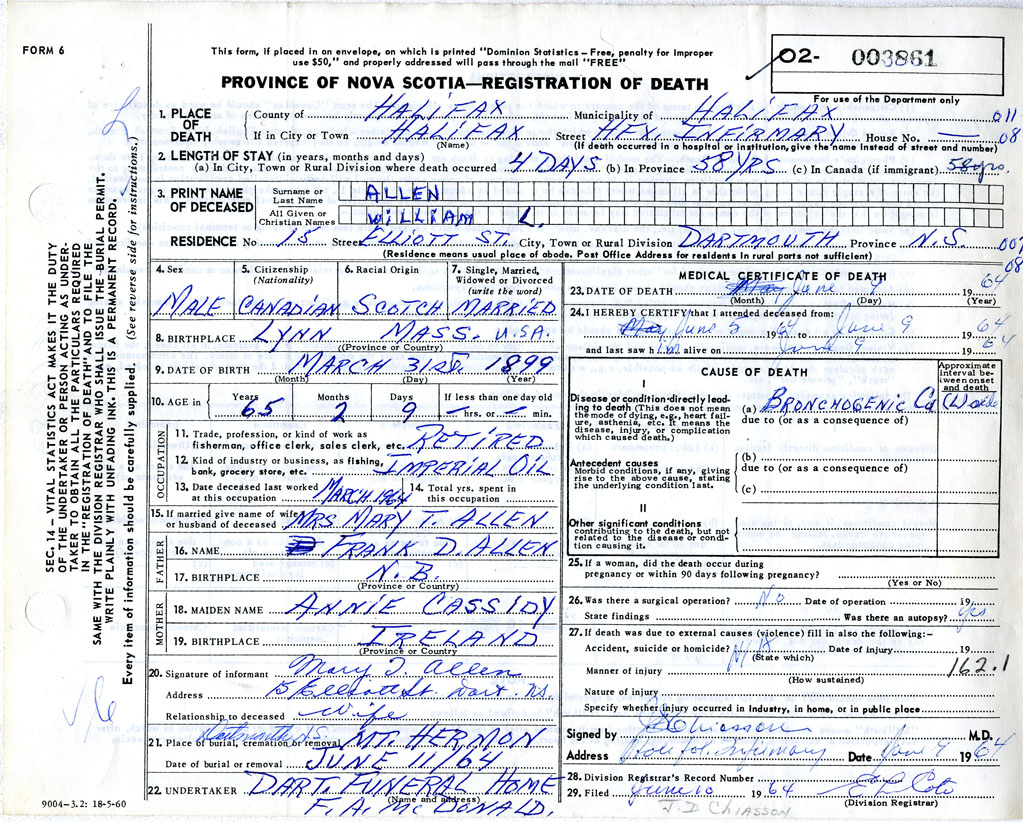 FORM 6
This form, if placed in an envelope, on which is printed "Dominion Statistics – Free, penalty for improper
use $50," and properly addressed will pass through the mail "FREE"
02- 003861
PROVINCE OF NOVA SCOTIA—REGISTRATION OF DEATH
For use of the Department only
1. PLACE OF DEATH
County of HALIFAX Municipality of HALIFAX 011
If in City or Town HALIFAX Street HFX. INFIRMARY House No. — 08
(Name) (If death occurred in a hospital or institution, give the name instead of street and number)
2. LENGTH OF STAY (in years, months and days)
(a) In City, Town or Rural Division where death occurred 4 DAYS (b) In Province 58 YRS (c) In Canada (if immigrant) 58 yrs.
3. PRINT NAME OF DECEASED
Surname or Last Name ALLEN
All Given or Christian Names WILLIAM L.
RESIDENCE No. 15 Street ELLIOTT ST. City, Town or Rural Division DARTMOUTH Province N.S.
(Residence means usual place of abode. Post Office Address for residents in rural parts not sufficient)
08
SEC. 14 – VITAL STATISTICS ACT MAKES IT THE DUTY
OF THE UNDERTAKER OR PERSON ACTING AS UNDER-
TAKER TO OBTAIN ALL THE PARTICULARS REQUIRED
IN THE "REGISTRATION OF DEATH" AND TO FILE THE
SAME WITH THE DIVISION REGISTRAR WHO SHALL ISSUE THE BURIAL PERMIT.
WRITE PLAINLY WITH UNFADING INK. THIS IS A PERMANENT RECORD.
Every item of information should be carefully supplied. (See reverse side for instructions.)
4. Sex 5. Citizenship (Nationality) 6. Racial Origin 7. Single, Married, Widowed or Divorced (write the word)
MALE CANADIAN SCOTCH MARRIED
8. BIRTHPLACE LYNN MASS. U.S.A.
(Province or Country)
9. DATE OF BIRTH MARCH 31ST. 1899
(Month) (Day) (Year)
10. AGE in Years Months Days If less than one day old
65 2 9 — hrs. or — min.
OCCUPATION
11. Trade, profession, or kind of work as
fisherman, office clerk, sales clerk, etc. RETIRED
12. Kind of industry or business, as fishing,
bank, grocery store, etc. IMPERIAL OIL
13. Date deceased last worked
at this occupation MARCH 1964
14. Total yrs. spent in
this occupation
15. If married give name of wife
or husband of deceased MRS MARY T. ALLEN
FATHER
16. NAME FRANK D. ALLEN
17. BIRTHPLACE N.B.
(Province or Country)
MOTHER
18. MAIDEN NAME ANNIE CASSIDY
19. BIRTHPLACE IRELAND
(Province or Country)
20. Signature of informant Mary T. Allen
Address 15 Elliott St. Dart. N.S.
Relationship to deceased Wife
Dartmouth N.S.
21. Place of burial, cremation or removal MT. HERMON
Date of burial or removal JUNE 11/64
22. UNDERTAKER DART. FUNERAL HOME
(Name and address)
F. A. McDONALD.
9004-3.2: 18-5-60
MEDICAL CERTIFICATE OF DEATH
23. DATE OF DEATH May June 9 1964
(Month) (Day) (Year)
24. I HEREBY CERTIFY that I attended deceased from:
May June 1964 to June 9 1964
and last saw him alive on June 9 1964
CAUSE OF DEATH
Approximate interval between onset and death
I
Disease or condition directly lead-
ing to death (This does not mean
the mode of dying, e.g., heart fail-
ure, asthenia, etc. It means the
disease, injury, or complication
which caused death.)
(a) BRONCHOGENIC Ca (L)
due to (or as a consequence of)
Antecedent causes
Morbid conditions, if any, giving
rise to the above cause, stating
the underlying condition last.
(b)
due to (or as a consequence of)
(c)
II
Other significant conditions
contributing to the death, but not
related to the disease or condi-
tion causing it.
25. If a woman, did the death occur during
pregnancy or within 90 days following pregnancy?
(Yes or No)
26. Was there a surgical operation? No Date of operation 19
State findings Was there an autopsy? Yes
27. If death was due to external causes (violence) fill in also the following:–
Accident, suicide or homicide? Date of injury 19
(State which)
Manner of injury 162.1
(How sustained)
Nature of injury
Specify whether injury occurred in industry, in home, or in public place
Signed by J D Chiasson M.D.
Address Halifax Infirmary Date June 9 1964
28. Division Registrar's Record Number
29. Filed June 10 1964
(Division Registrar)
J. D. CHIASSON